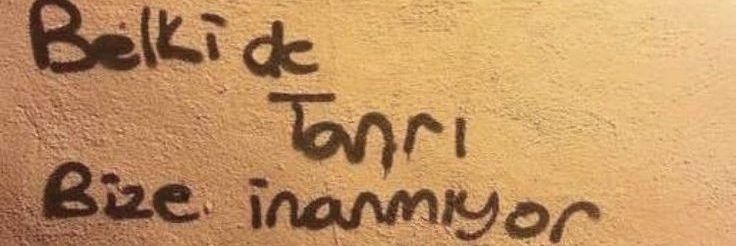 Belki de
Tanrı
Bize inanmıyor